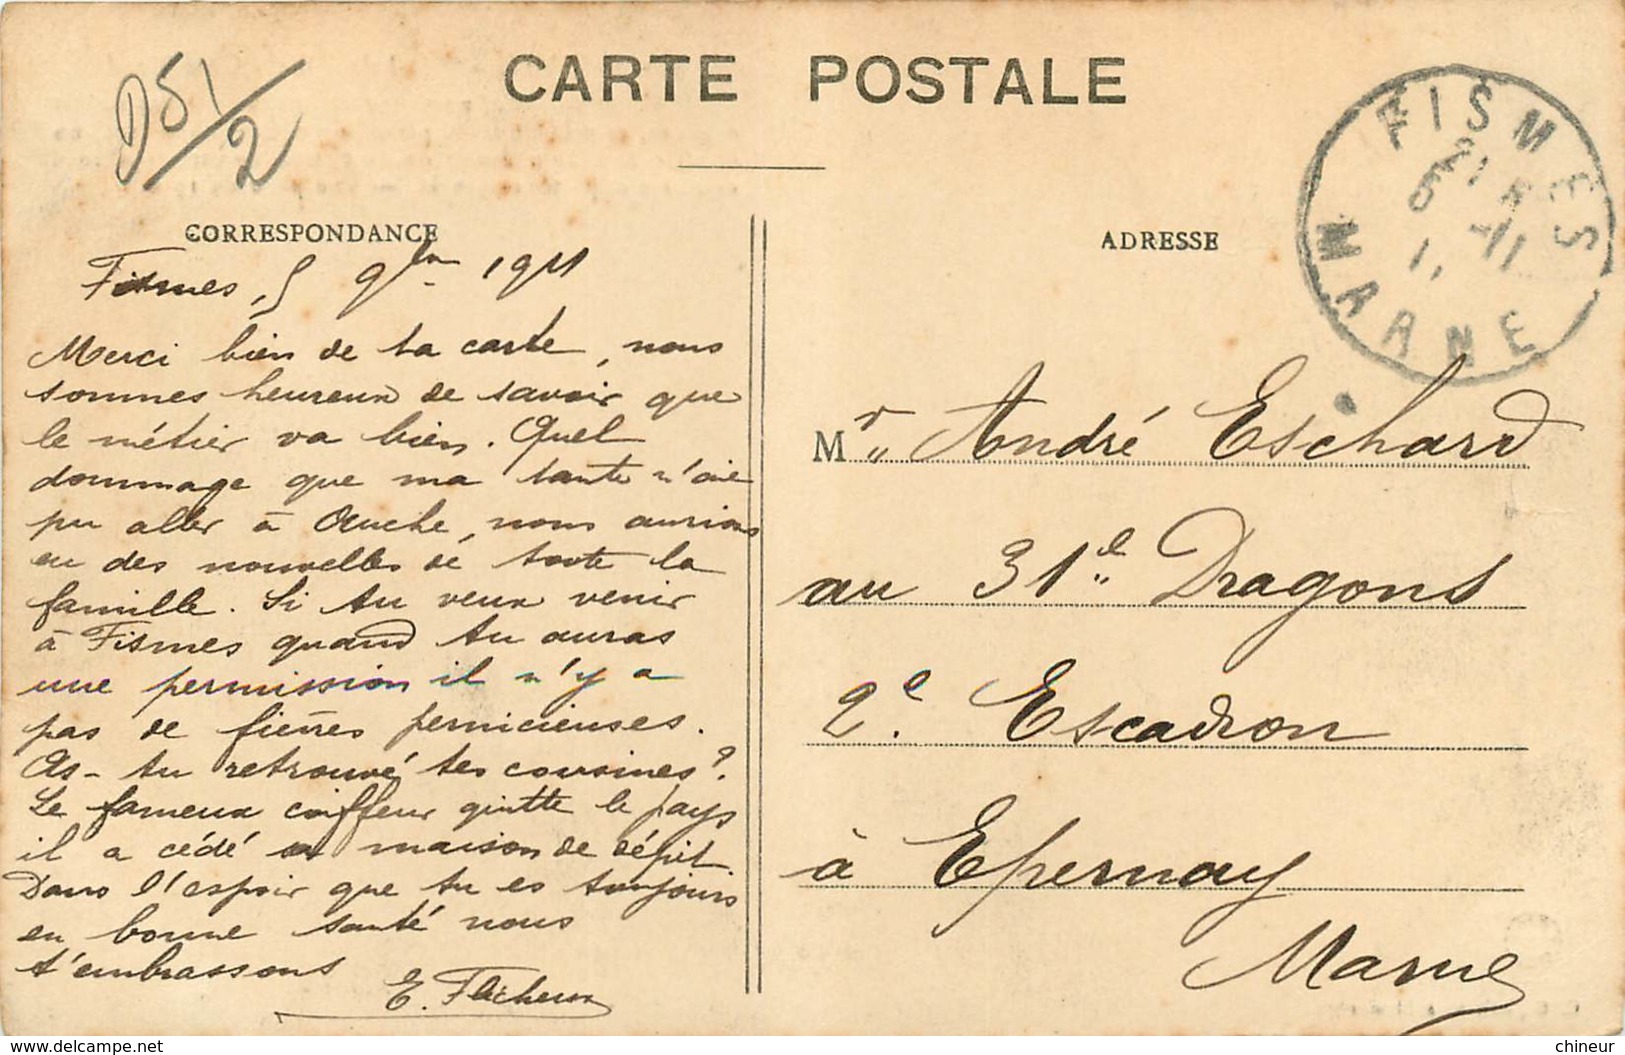 CARTE POSTALE
D51/2
FISMES
MARNE
CORRESPONDANCE
Fismes, 5 9bre 1911
Merci bien de ta carte, nous
sommes heureux de savoir que
le métier va bien. Quel
dommage que ma tante n'aie
pu aller à Auche, nous aurions
eu des nouvelles de toute la
famille. Si tu veux venir
à Fismes quand tu auras
une permission il n'y a
pas de fièvres pernicieuses.
As-tu retrouvé tes cousines ?
Le fameux coiffeur quitte le pays
il a cédé sa maison de dépit
Dans l'espoir que tu es toujours
en bonne santé nous
t'embrassons
E.
ADRESSE
Mr André Eschard
au 31e Dragons
2e Escadron
à Epernay
Marne
www.delcampe.net
chineur